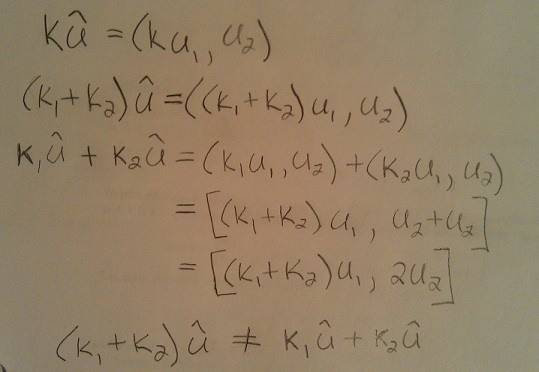 kû = (ku₁, u₂)
(k₁+k₂)û = ((k₁+k₂)u₁, u₂)
k₁û + k₂û = (k₁u₁, u₂)+(k₂u₁, u₂)
= [(k₁+k₂) u₁, u₂+u₂]
= [(k₁+k₂)u₁, 2u₂]
(k₁+k₂)û ≠ k₁û + k₂û